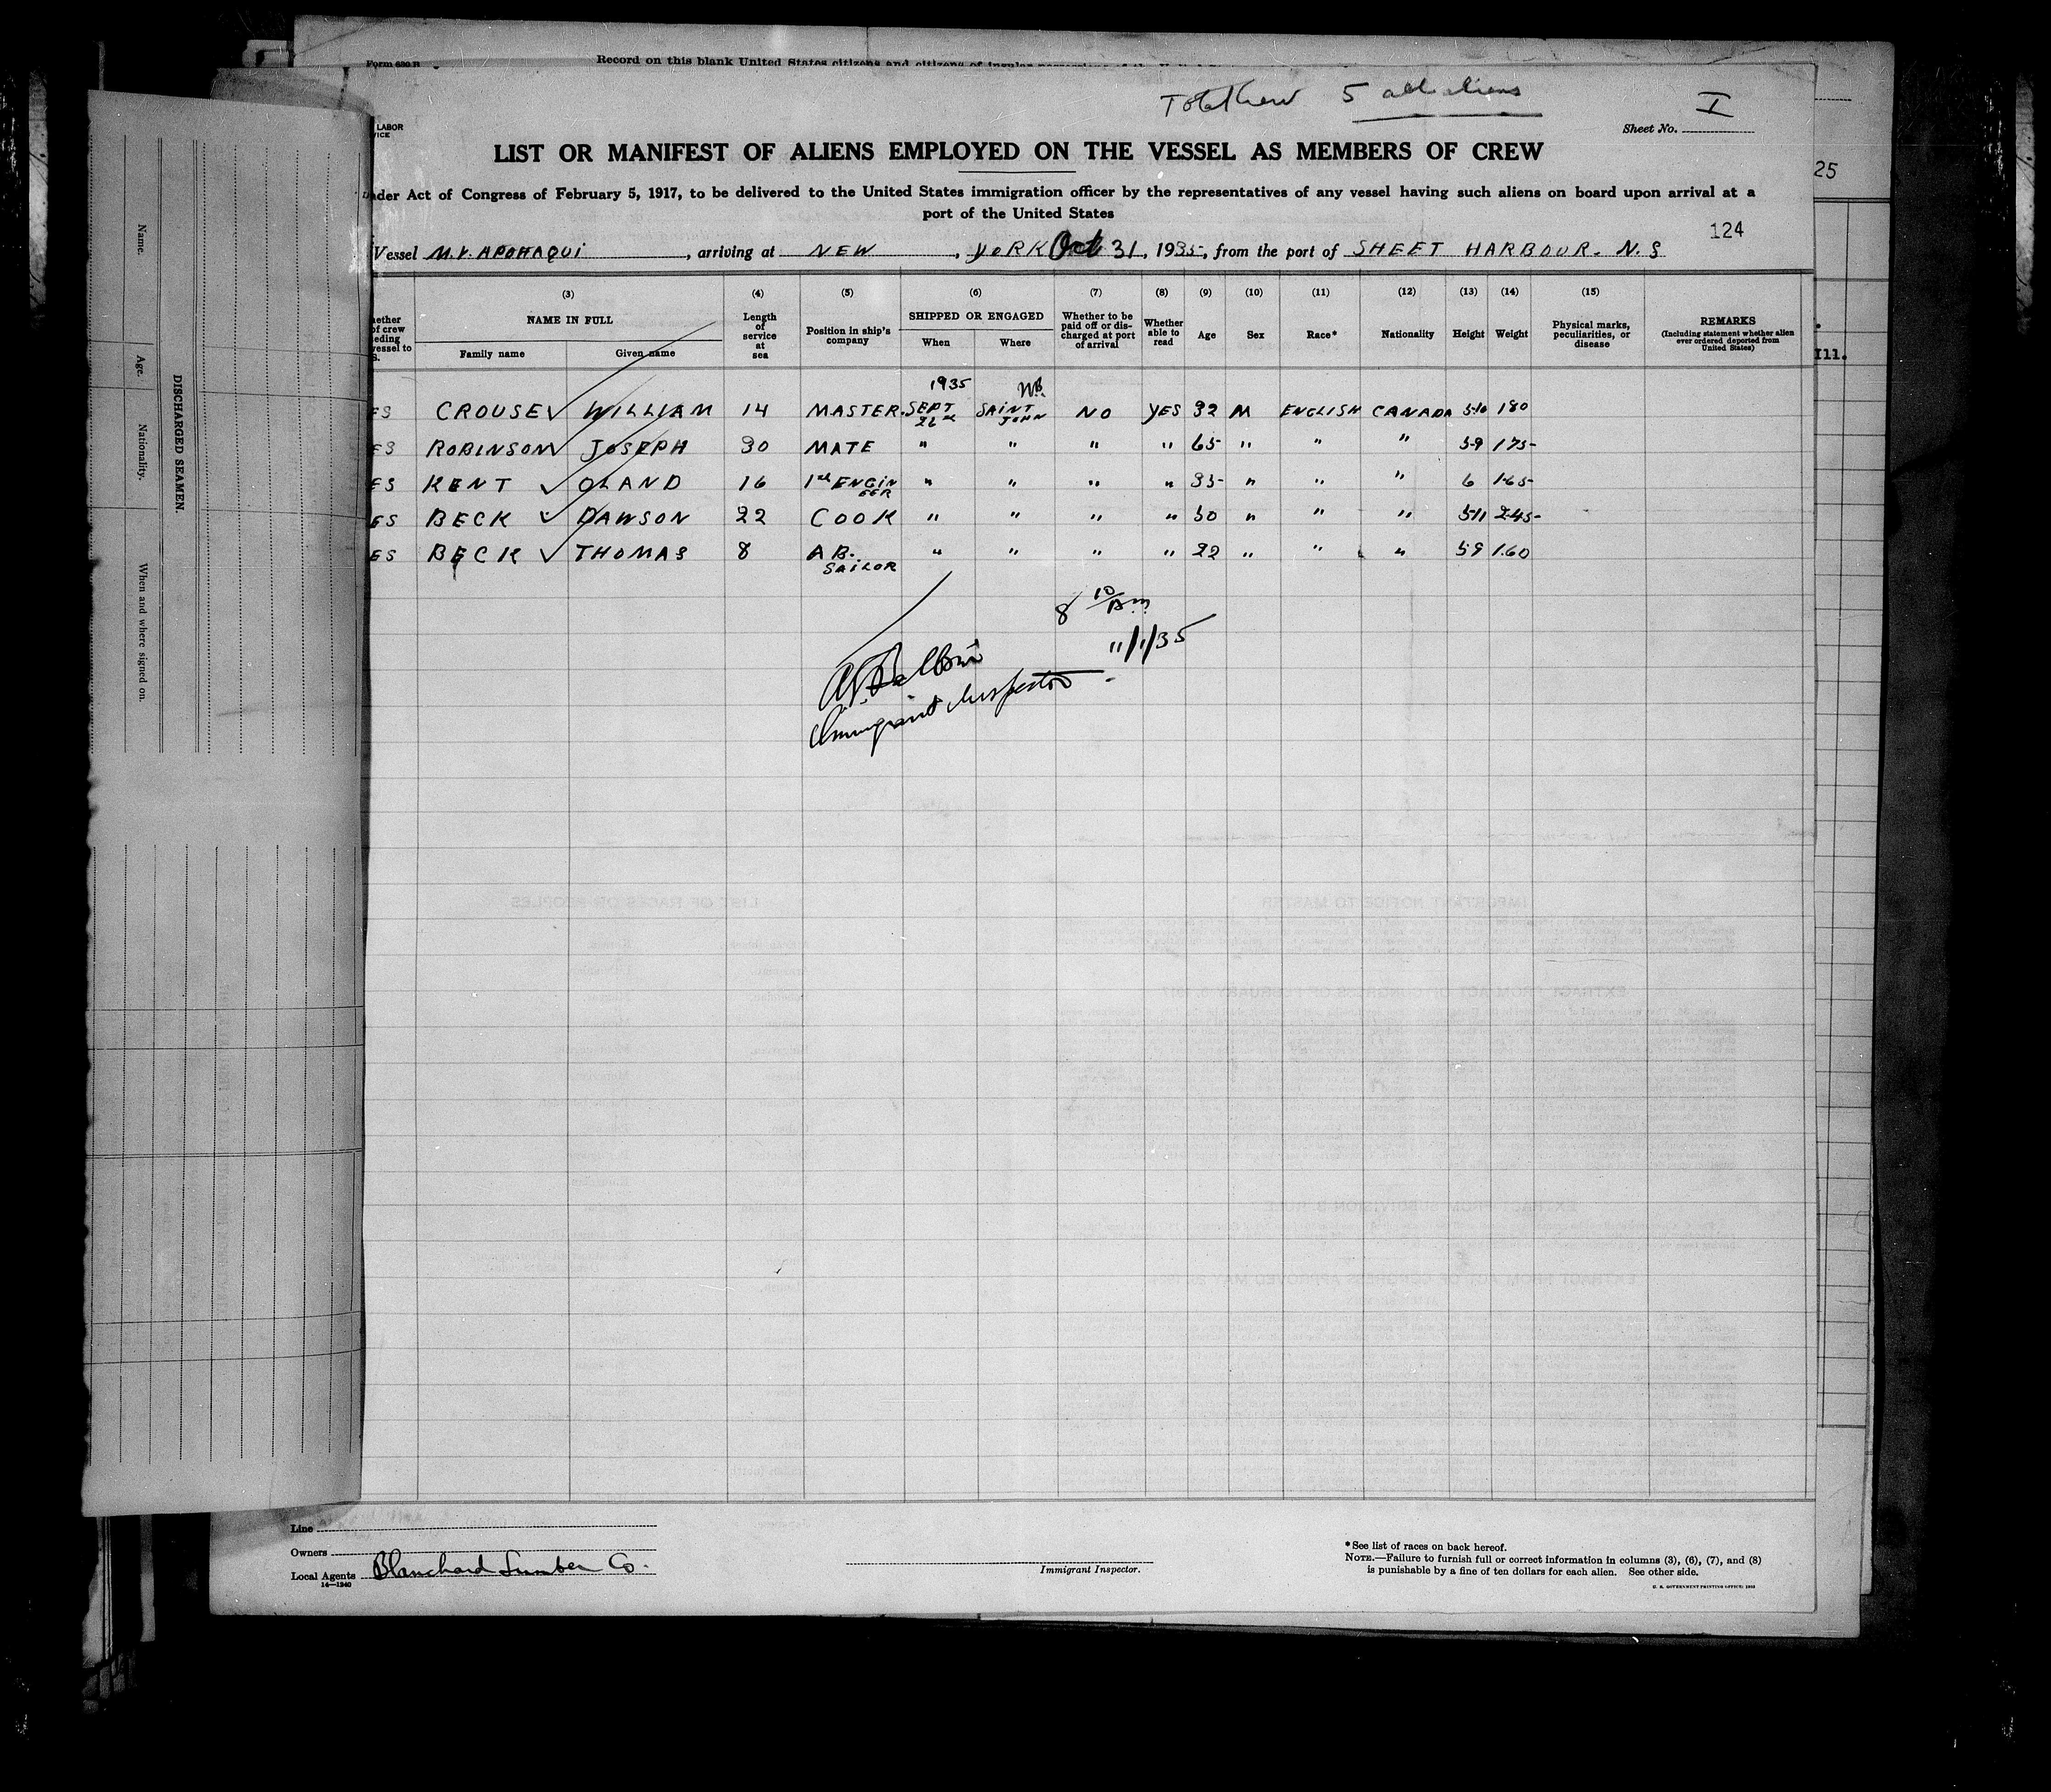 Form 680 B
Record on this blank United States citizens and citizens of insular
Total Crew 5 all aliens
I
LABOR
VICE
Sheet No.
LIST OR MANIFEST OF ALIENS EMPLOYED ON THE VESSEL AS MEMBERS OF CREW
25
under Act of Congress of February 5, 1917, to be delivered to the United States immigration officer by the representatives of any vessel having such aliens on board upon arrival at a
port of the United States
124
Vessel M.V. APOHAQUI, arriving at NEW, YORK Oct 31, 1935, from the port of SHEET HARBOUR. N.S
(3) (4) (5) (6) (7) (8) (9) (10) (11) (12) (13) (14) (15)
NAME IN FULL
Family name Given name
Length of service at sea
Position in ship's company
SHIPPED OR ENGAGED
When Where
Whether to be paid off or discharged at port of arrival
Whether able to read
Age Sex Race* Nationality Height Weight
Physical marks, peculiarities, or disease
REMARKS
(Including statement whether alien ever ordered deported from United States)
Ill.
1935 N.B.
ES CROUSE ✓ WILLIAM 14 MASTER. SEPT 26th SAINT JOHN NO YES 32 M ENGLISH CANADA 5-10 180
ES ROBINSON ✓ JOSEPH 30 MATE " " " " 65 " " " 5-9 175-
ES KENT ✓ OLAND 16 1st ENGINEER " " " " 35- " " " 6 165-
ES BECK ✓ DAWSON 22 COOK " " " " 50 " " " 5-11 245-
ES BECK ✓ THOMAS 8 A B. SAILOR " " " " 22 " " " 5-9 160
8 10/Am
11/1/35
Immigrant Inspector
Name. Age. Nationality. When and where signed on.
DISCHARGED SEAMEN.
Line
Owners
Local Agents Blanchard Lumber Co.
14—1240
Immigrant Inspector.
*See list of races on back hereof.
NOTE.—Failure to furnish full or correct information in columns (3), (6), (7), and (8)
is punishable by a fine of ten dollars for each alien. See other side.